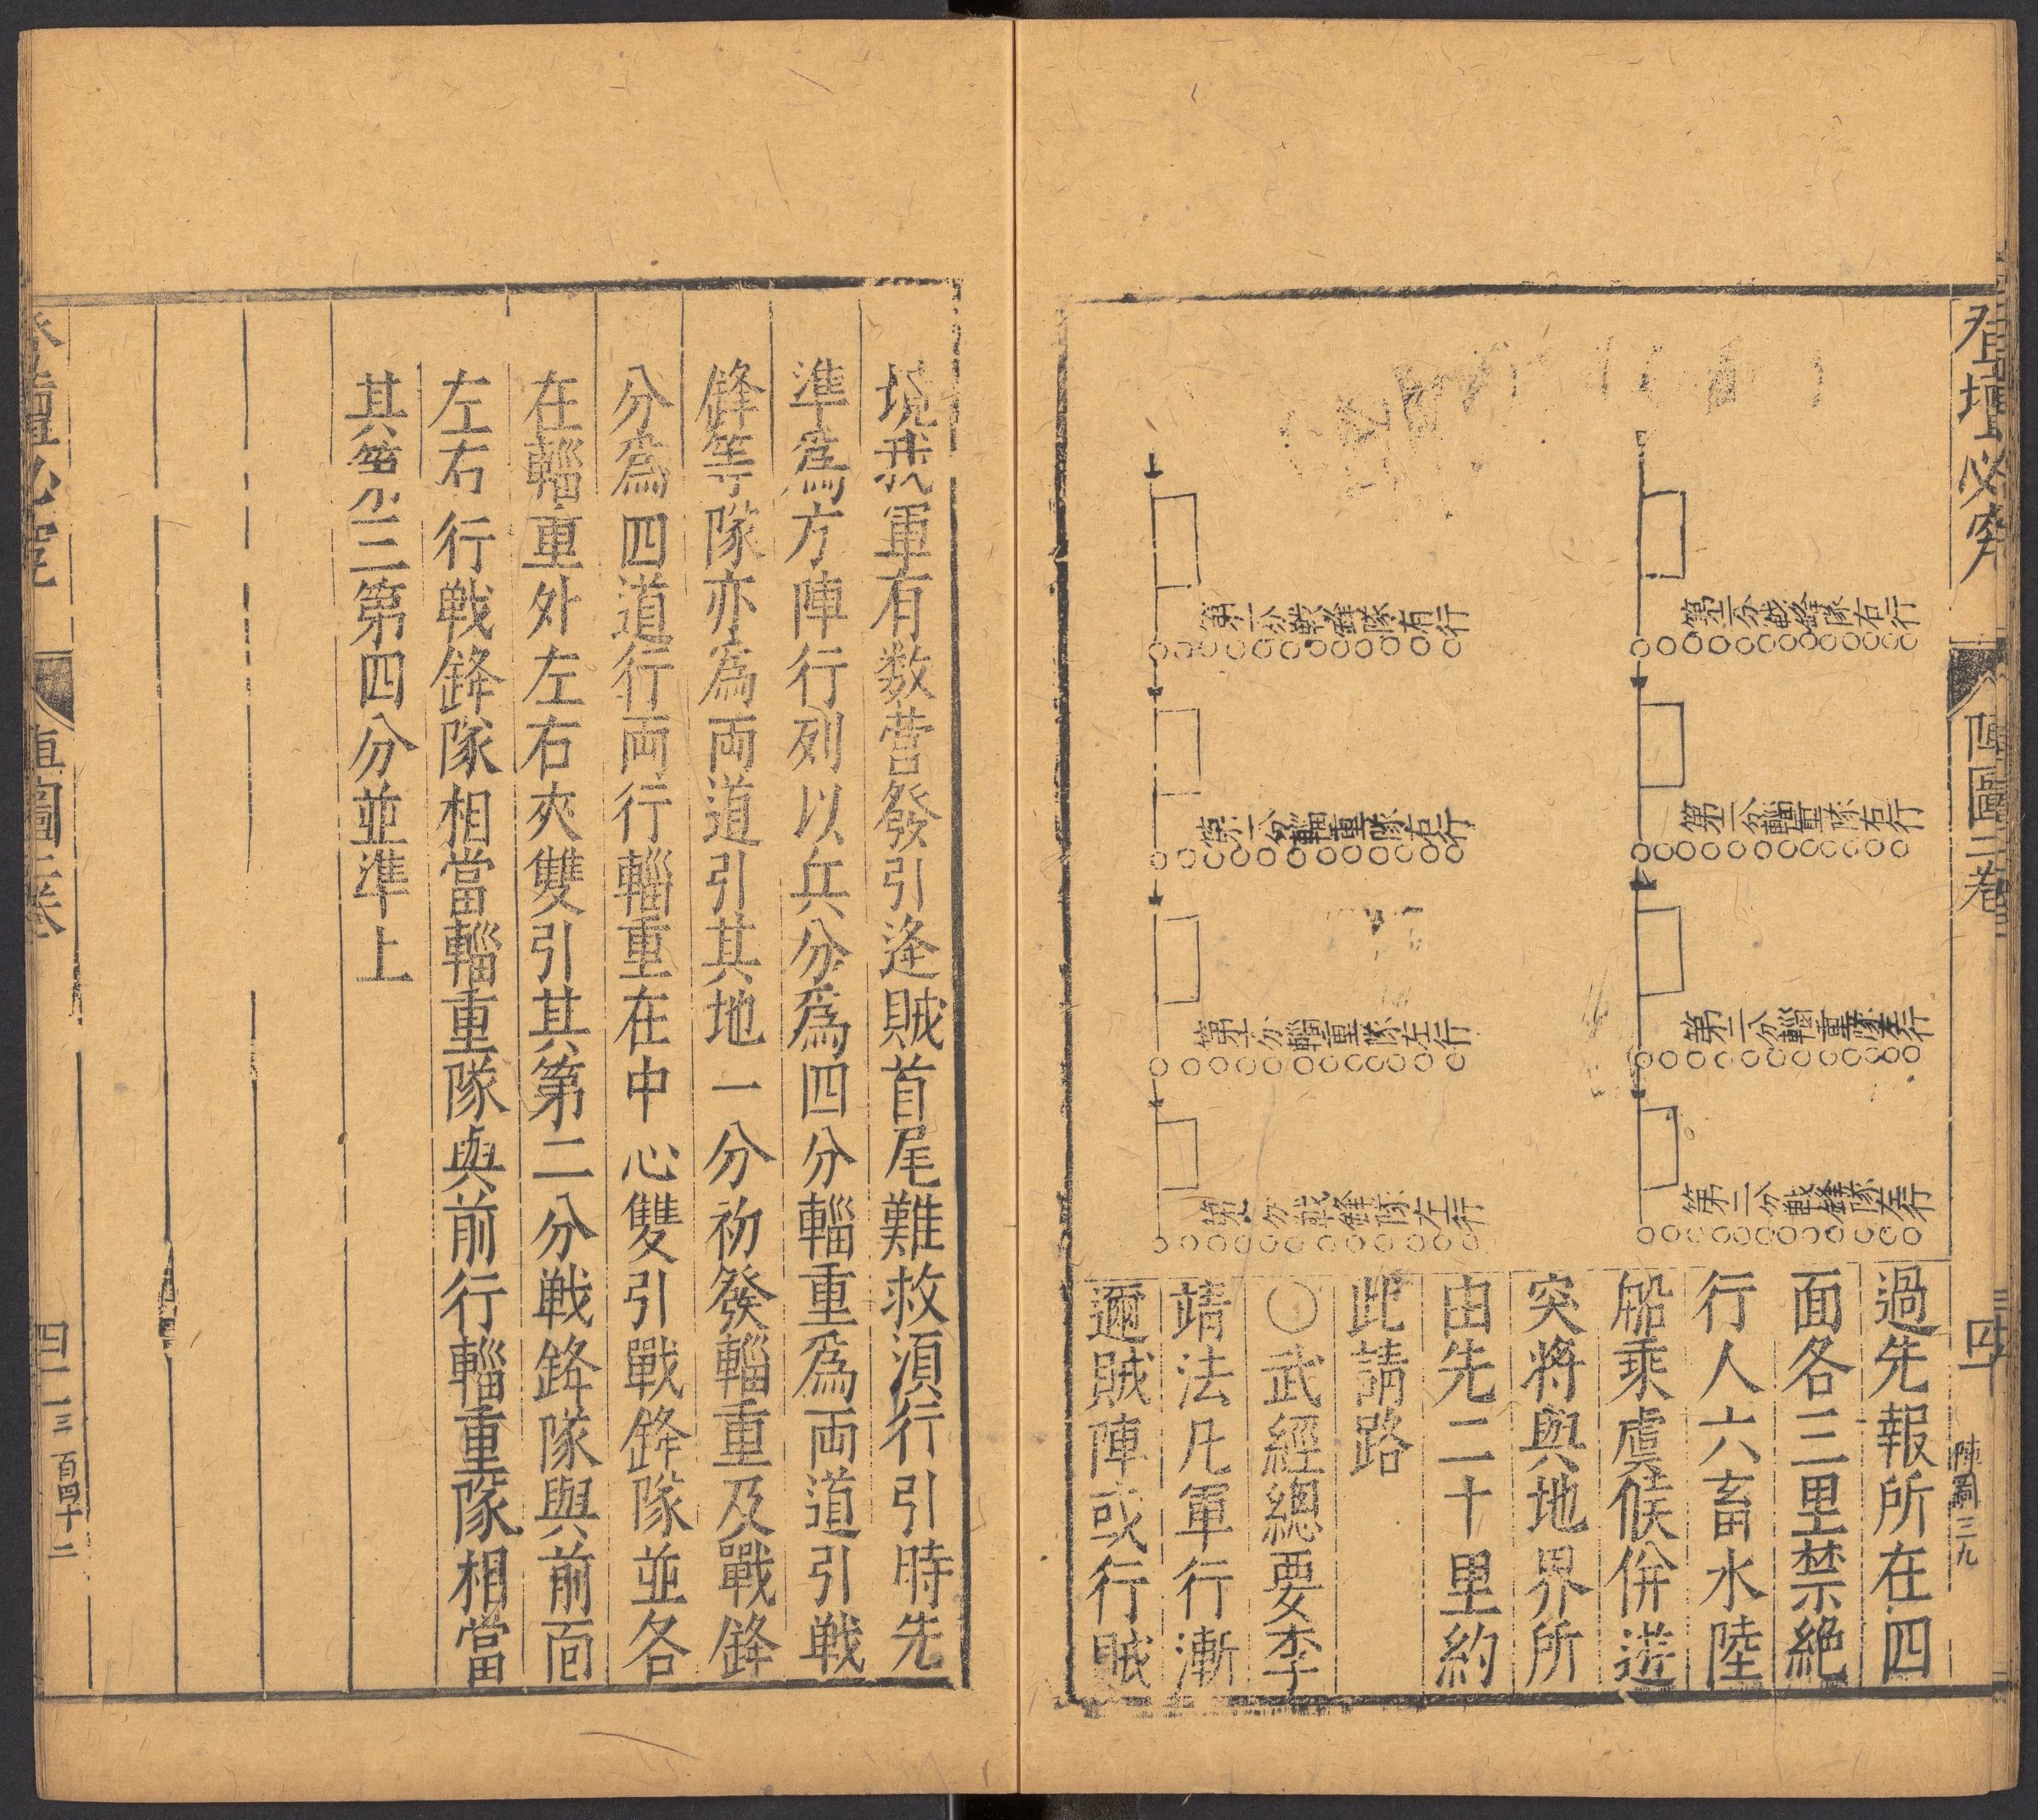 登壇必究
陣圖三卷
四十
陣圖三九
第二分戰鋒隊右行
第二分輜重隊右行
第二分輜重隊左行
第二分戰鋒隊左行
第一分戰鋒隊右行
第一分輜重隊右行
第一分輜重隊左行
第一分戰鋒隊左行
過先報所在四
面各三里禁絶
行人六畜水陸
船乘虞候併遊
突將與地界所
由先二十里約
此請路
○武經總要李
靖法凡軍行漸
邇賊陣或行賊
境我軍有数营發引逄賊首尾難救湏行引時先
準爲方陣行列以兵分爲四分輜重爲両道引戦
鋒等隊亦爲両道引其地一分初發輜重及戰鋒
分爲四道行両行輜重在中心雙引戰鋒隊並各
在輜重外左右夾雙引其第二分戦鋒隊與前面
左右行戦鋒隊相當輜重隊與前行輜重隊相當
其第三第四分並準上
百四十二